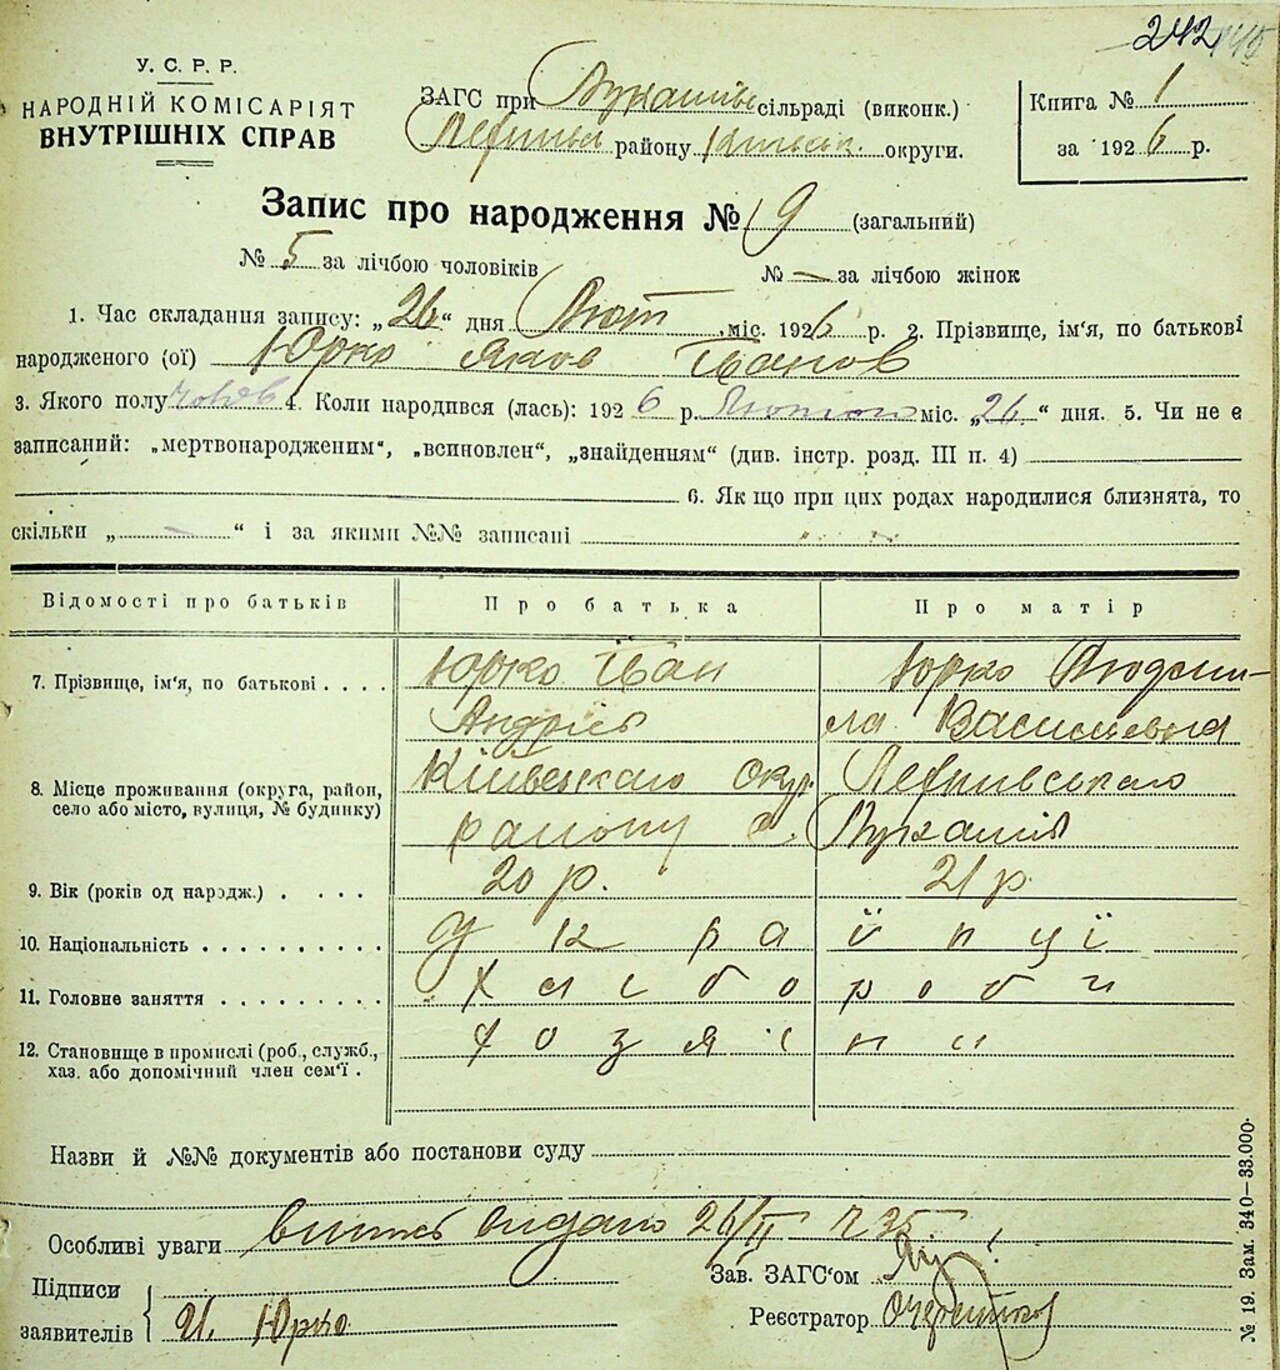 242
У. С. Р. Р.
НАРОДНІЙ КОМІСАРІЯТ
ВНУТРІШНІХ СПРАВ
ЗАГС при Лукашів сільраді (виконк.)
району округи.
Книга № 1
за 1926 р.
Запис про народження № 9 (загальний)
№ 5 за лічбою чоловіків № — за лічбою жінок
1. Час складання запису: „26“ дня Лют міс. 1926 р. 2. Прізвище, ім'я, по батькові
народженого (ої) Юрко Яков Іванов
3. Якого полу чолов 4. Коли народився (лась): 1926 р. Лютого міс. „26“ дня. 5. Чи не є
записаний: „мертвонародженим“, „всиновлен“, „знайденням“ (див. інстр. розд. III п. 4)
6. Як що при цих родах народилися близнята, то
скільки „ — “ і за якими №№ записані
Відомості про батьків Про батька Про матір
7. Прізвище, ім'я, по батькові . . . . Юрко Іван Юрко Людми-
Андрієв ла Василевна
8. Місце проживання (округа, район, село або місто, вулиця, № будинку) Київськаго окр.
району с. Лукашів
9. Вік (років од народж.) . . . . 20 р. 21 р.
10. Національність . . . . . . . . . . Українці
11. Головне заняття . . . . . . . . . Хлібороби
12. Становище в промислі (роб., служб., хаз. або допомічний член сем'ї . Хозяїни
Назви й №№ документів або постанови суду
Особливі уваги видано 26/II ч 35
Підписи
заявителів И. Юрко
Зав. ЗАГС'ом
Реєстратор
№ 19. Зам. 340—33.000.